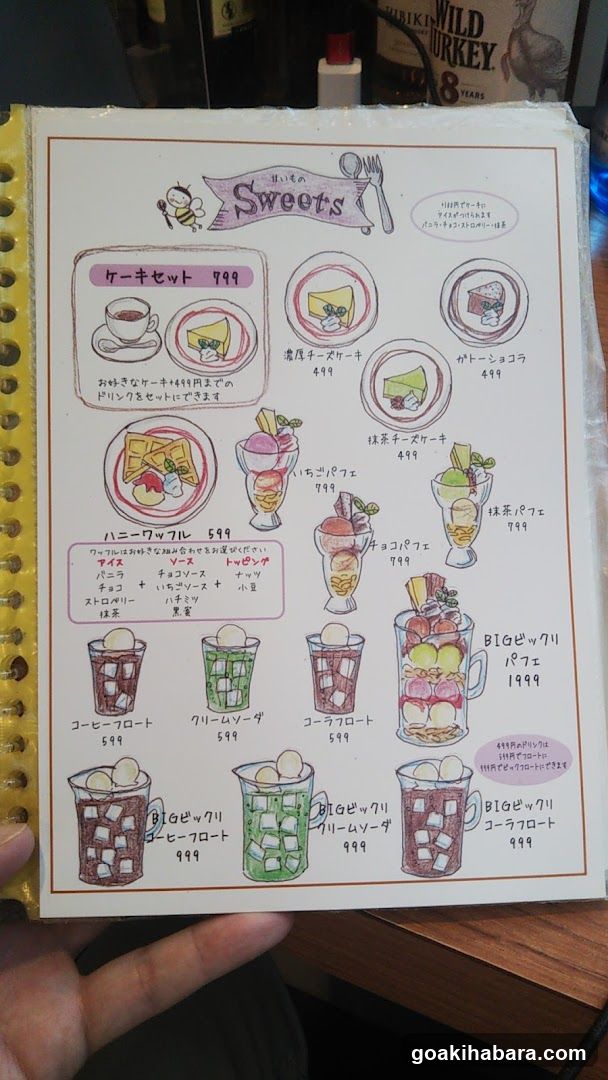 HIBIKI
WILD
TURKEY
8 YEARS
甘いもの
Sweets
+100円でケーキに
アイスがつけられます
バニラ・チョコ・ストロベリー・抹茶
ケーキセット 799
お好きなケーキ+499円までの
ドリンクをセットにできます
濃厚チーズケーキ
499
ガトーショコラ
499
抹茶チーズケーキ
499
ハニーワッフル 599
いちごパフェ
799
チョコパフェ
799
抹茶パフェ
799
ワッフルはお好きな組み合わせをお選びください
アイス ソース トッピング
バニラ チョコソース ナッツ
チョコ + いちごソース + 小豆
ストロベリー ハチミツ
抹茶 黒蜜
BIGビックリ
パフェ
1999
コーヒーフロート
599
クリームソーダ
599
コーラフロート
599
499円のドリンクは
599円でフロートに
999円でビックフロートにできます
BIGビックリ
コーヒーフロート
999
BIGビックリ
クリームソーダ
999
BIGビックリ
コーラフロート
999
goakihabara.com